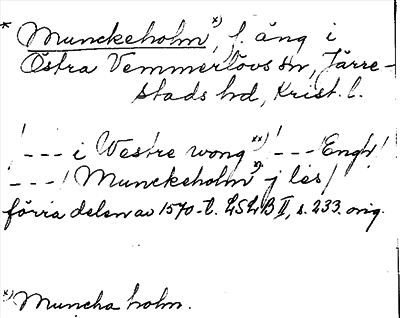 * Munckeholm x), f. äng i
Östra Vemmerlövs sn, Järre-
stads hd, Krist. l.
/---i Westre wong xx)/---/Engh/
---/Munckeholm x) j les/
förra delen av 1570-t. LSLB II, s. 233. orig.
x) Muncha holm.